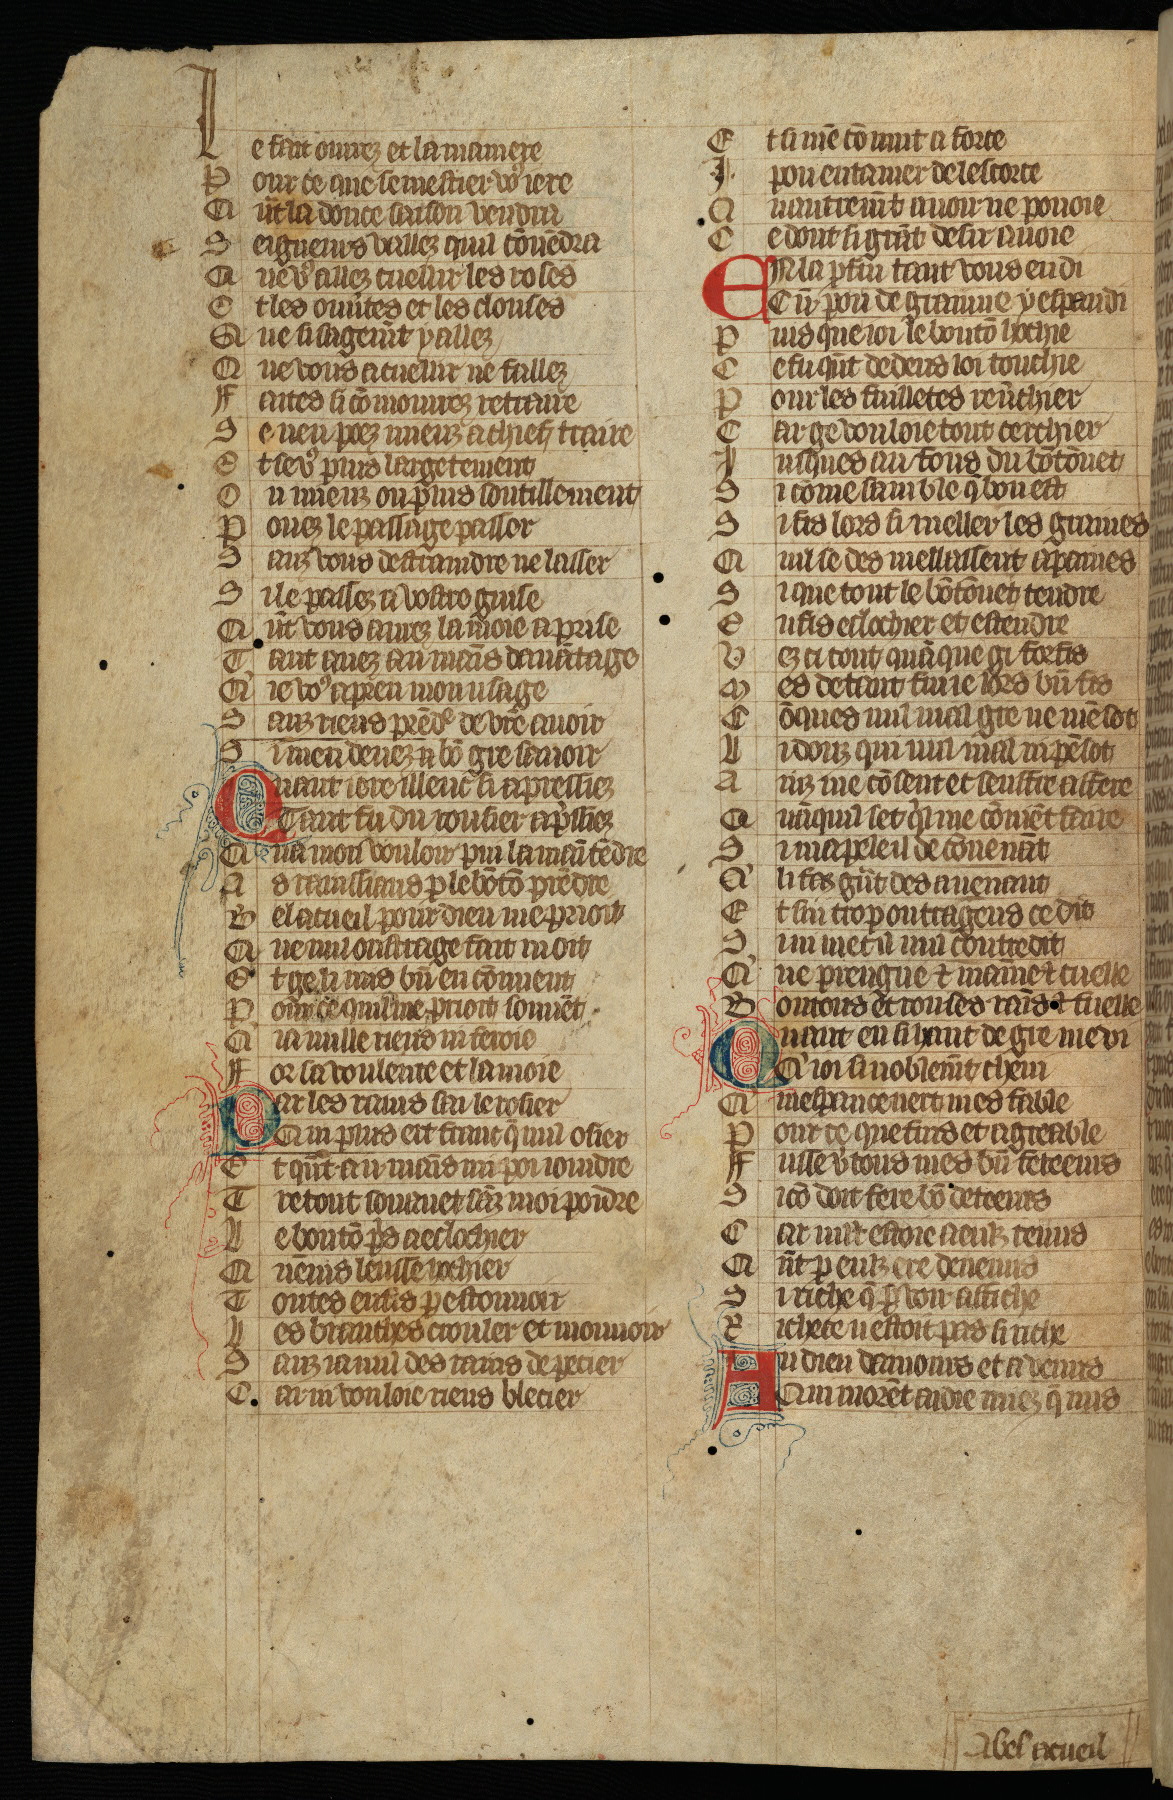 Le fait orrez et la maniere
Pour ce que se mestier vꝰ iere
Qñt la douce saison vendra
Seigneurs vallez quil cōuēdra
Que vꝰ aillez cuellir les roses
Et les ouūtes et les closes
Que si sagemt̄ y aillez
Que vous acuellir ne faillez
Faites si cō morrez retraire
Se neu poez mieuz achief traire
Et se vꝰ plus largement
Ou mieuz ou plus soutillement
Pouez le passage passer
Sanz vous destraindre ne lasser
Si le passez a vostre guise
Qñt vous aurez la moie aprise
Tant auez au mains dauātage
Qie vꝰ apren mon usage
Sanz riens prēdᵉ de vrē auoir
Si men deuez a bō gre sauoir
Quant iere illenc si apressiez
Tant fu du rousier apssiez
Qua mon vouloir pui la main tēdre
As rainssiaus p le bōtō prēdre
Bel acueil pour dieu me prioit
Que nul oustrage fait nioit
Et ge li mis bn̄ en conuent
Pour ce quil me prioit souuēt
Qia nulle riens ni feroie
For sa voulente et la moie
Par les rains saisi le rosier
Qui plus est franc q̄ nul osier
Et qñt au mains mi poi ioindre
Tretout souauet sāz moi poindre
Le boutō pris a eslochier
Quenuis leusse hochier
Toutes en fis p estouuoir
Les branches crouler et mouuoir
Sanz ia nul des rains depecier
Car ni vouloie riens blecier
Et si mē cō uint a force
I poi entamer de lescorce
Quautremt̄ auoir ne pooie
Ce dont si grāt desir auoie
En la pfin tant vous en di
Cū poi de graine y espandi
Puis que ioi le boutō hochie
Ce fu qñt dedens loi touchie
Pour les fuilletes reuchier
Car ge vouloie tout cerchier
Iusques au fons du bōtōnet
Si come samble q bon est
Si fis lors si meller les graines
Qui se desmellassent apaines
Si que tout le bōtōnet tendre
En fis eslochier et estendre
Vez ci tout quāque gi forfis
Mes de tant fui ie lors bn̄ fis
Cōques nul mal gre ne mē sot
Li douz qui nul mal ni pēsot
Ainz me cōsent et seuffre afere
Quāquil set q̄ me cōuēt faire
Si mapeleil de cōuenāt
Qli fas gn̄t desauenant
Et sui trop outrageus ce dit
Si ni met il nul contredit
Que prengne ⁊ maine ⁊ cuelle
Boutons et rouses rāis ⁊ fuelle
Quant en si haut degre me vi
Qioi si noblemt̄ cheui
Que mesperance nert mes fable
Pour ce que fins et agreable
Fusse vs̄ tous mes bn̄ feteeurs
Si cō doit fere bō deteeurs
Car mlt̄ estoie a euz tenus
Qñt p euz ere deuenus
Si riche q̄ p̄ voir afiche
Richece nestoit pas si riche
Au dieu damours et a venus
Qui morēt aidie miez q̄ nus
Abel acueil